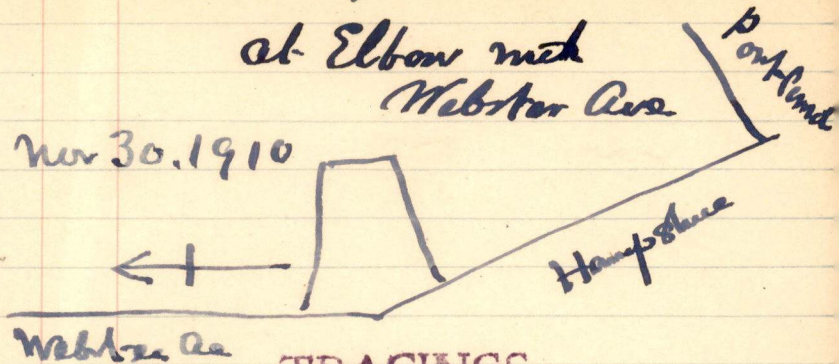 at Elbow with
Webster Ave
Portland
Nov 30, 1910
Hampshire
Webster Av
TRACINGS